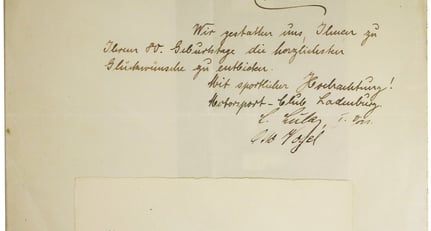 Wir gestatten uns, Ihnen zu
Ihrem 80. Geburtstage die herzlichsten
Glückwünsche zu entbieten.
Mit sportlicher Hochachtung!
Motorsport-Club Ladenburg.
I. Vors.
Vogel